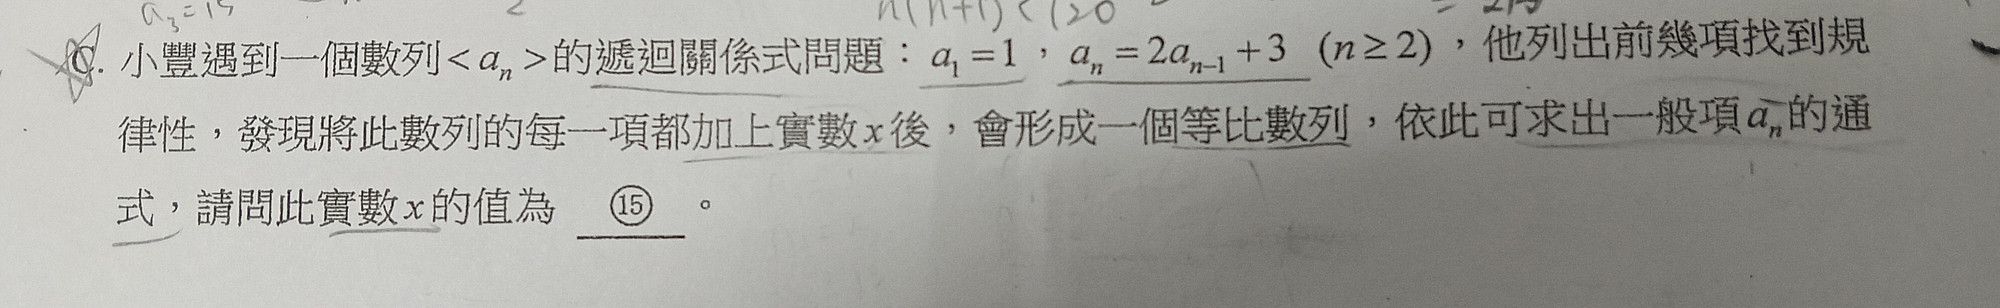 a₃=15
n(n+1)<120
C. 小豐遇到一個數列<aₙ>的遞迴關係式問題：a₁=1，aₙ=2aₙ₋₁+3 (n≥2)，他列出前幾項找到規
律性，發現將此數列的每一項都加上實數x後，會形成一個等比數列，依此可求出一般項aₙ的通
式，請問此實數x的值為 ⑮ 。